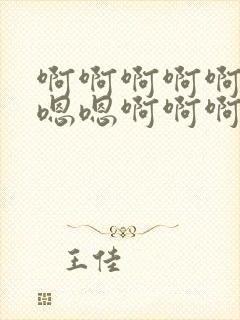 啊啊啊啊啊
嗯嗯啊啊啊
王佳